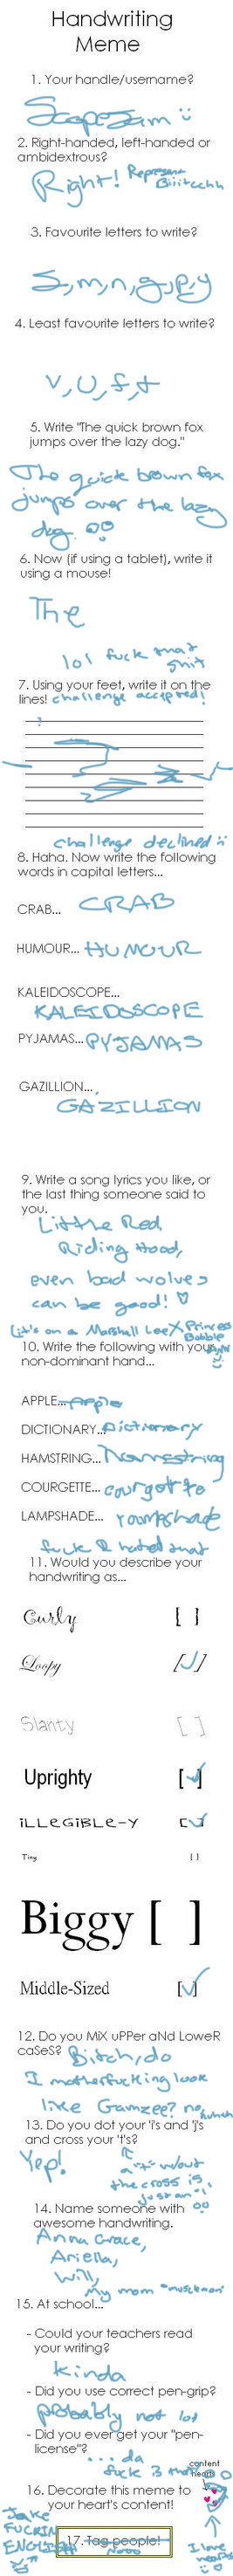 Handwriting
Meme
1. Your handle/username?
ScapeJam
2. Right-handed, left-handed or
ambidextrous?
Right! Represent
Biiitcchh
3. Favourite letters to write?
S,m,n,g,p,y
4. Least favourite letters to write?
v,U,f,t
5. Write "The quick brown fox
jumps over the lazy dog."
The quick brown fox
jumps over the lazy
dog.
6. Now (if using a tablet), write it
using a mouse!
The
lol fuck that
shit
7. Using your feet, write it on the
lines! challenge accepted!
challenge declined
8. Haha. Now write the following
words in capital letters...
CRAB... CRAB
HUMOUR... HUMOUR
KALEIDOSCOPE...
KALEIDOSCOPE
PYJAMAS... PYJAMAS
GAZILLION...
GAZILLION
9. Write a song lyrics you like, or
the last thing someone said to
you.
Little Red
Riding Hood,
even bad wolves
can be good!
(it's on a Marshall Lee X Prince
Bubble
10. Write the following with your
non-dominant hand...
APPLE... Apple
DICTIONARY... Dictionary
HAMSTRING... Hamstring
COURGETTE... courgette
LAMPSHADE... lampshade
fuck I hated that
11. Would you describe your
handwriting as...
Curly [ ]
Loopy [ ]
Slanty [ ]
Uprighty [ ]
iLLeGiBLe-Y [ ]
Tiny [ ]
Biggy [ ]
Middle-Sized [ ]
12. Do you MiX uPPer aNd LoweR
caSeS? Bitch, do
I motherfucking look
like Gamzee? no,
13. Do you dot your 'i's and 'j's
and cross your 't's?
Yep!
a "t" w/out
the cross is
just an l
14. Name someone with
awesome handwriting.
Anna Grace,
Ariella,
Will,
my mom
15. At school...
- Could your teachers read
your writing?
kinda
- Did you use correct pen-grip?
probably not lol
- Did you ever get your "pen-
license"?
...da
fuck
content
heart
16. Decorate this meme to
your heart's content!
Jake
FUCKIN
ENGLISH
17. Tag people!
Nooo
I love